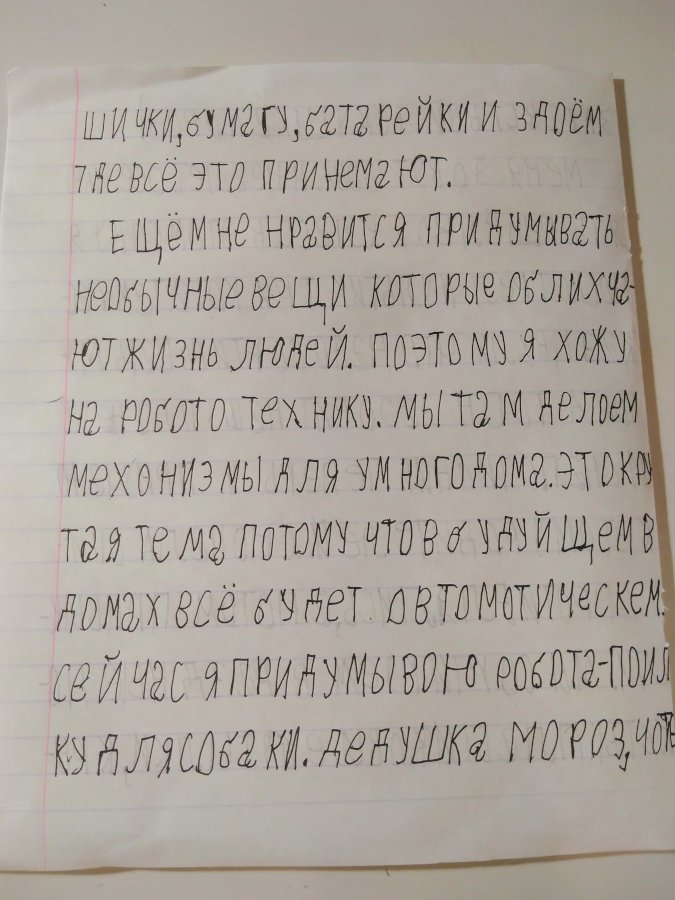 шички, бумагу, батарейки и здоём
где всё это принемают.
Ещё мне нравится придумывать
необычные вещи которые облихча-
ют жизнь людей. поэтому я хожу
на робото технику. мы там делоем
мехонизмы для умного дома. это кру
тая тема потому что в будуйщем в
домах всё будет овтомотическем.
сейчас я придумываю робота-поил
ку для собаки. дедушка мороз,